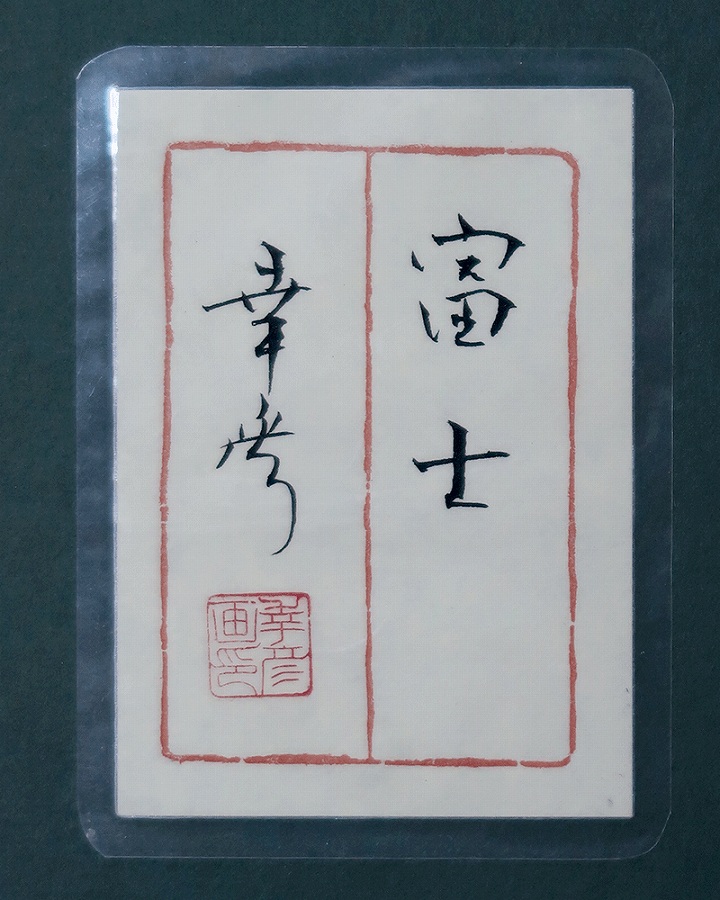 富士
幸彦
幸彦画印